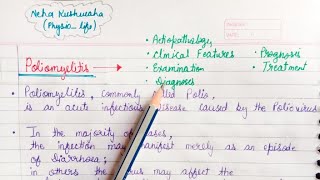 Neha Kushwaha
(Physio_life)
Poliomyelitis
• Aetiopathology
• Clinical Features
• Examination
• Diagnosis
• Prognosis
• Treatment
• Poliomyelitis, commonly called Polio,
is an acute infectious disease caused by the Poliovirus
• In the majority of cases,
the infection may manifest merely as an episode
of Diarrhoea;
in others the virus may affect the